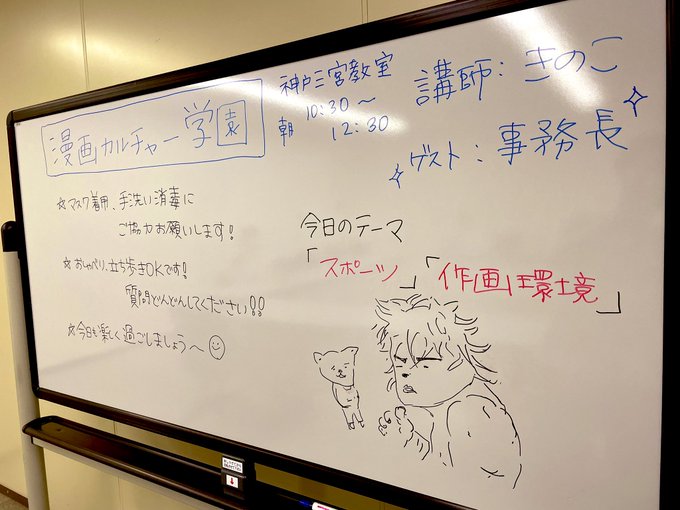 漫画カルチャー学園
神戸三宮教室
朝 10:30〜
12:30
講師：きのこ
ゲスト：事務長
☆マスク着用、手洗い消毒に
ご協力お願いします!
☆おしゃべり、立ち歩きOKです!
質問どんどんしてください!!
☆今日も楽しく過ごしましょう〜
今日のテーマ
「スポーツ」「作画環境」